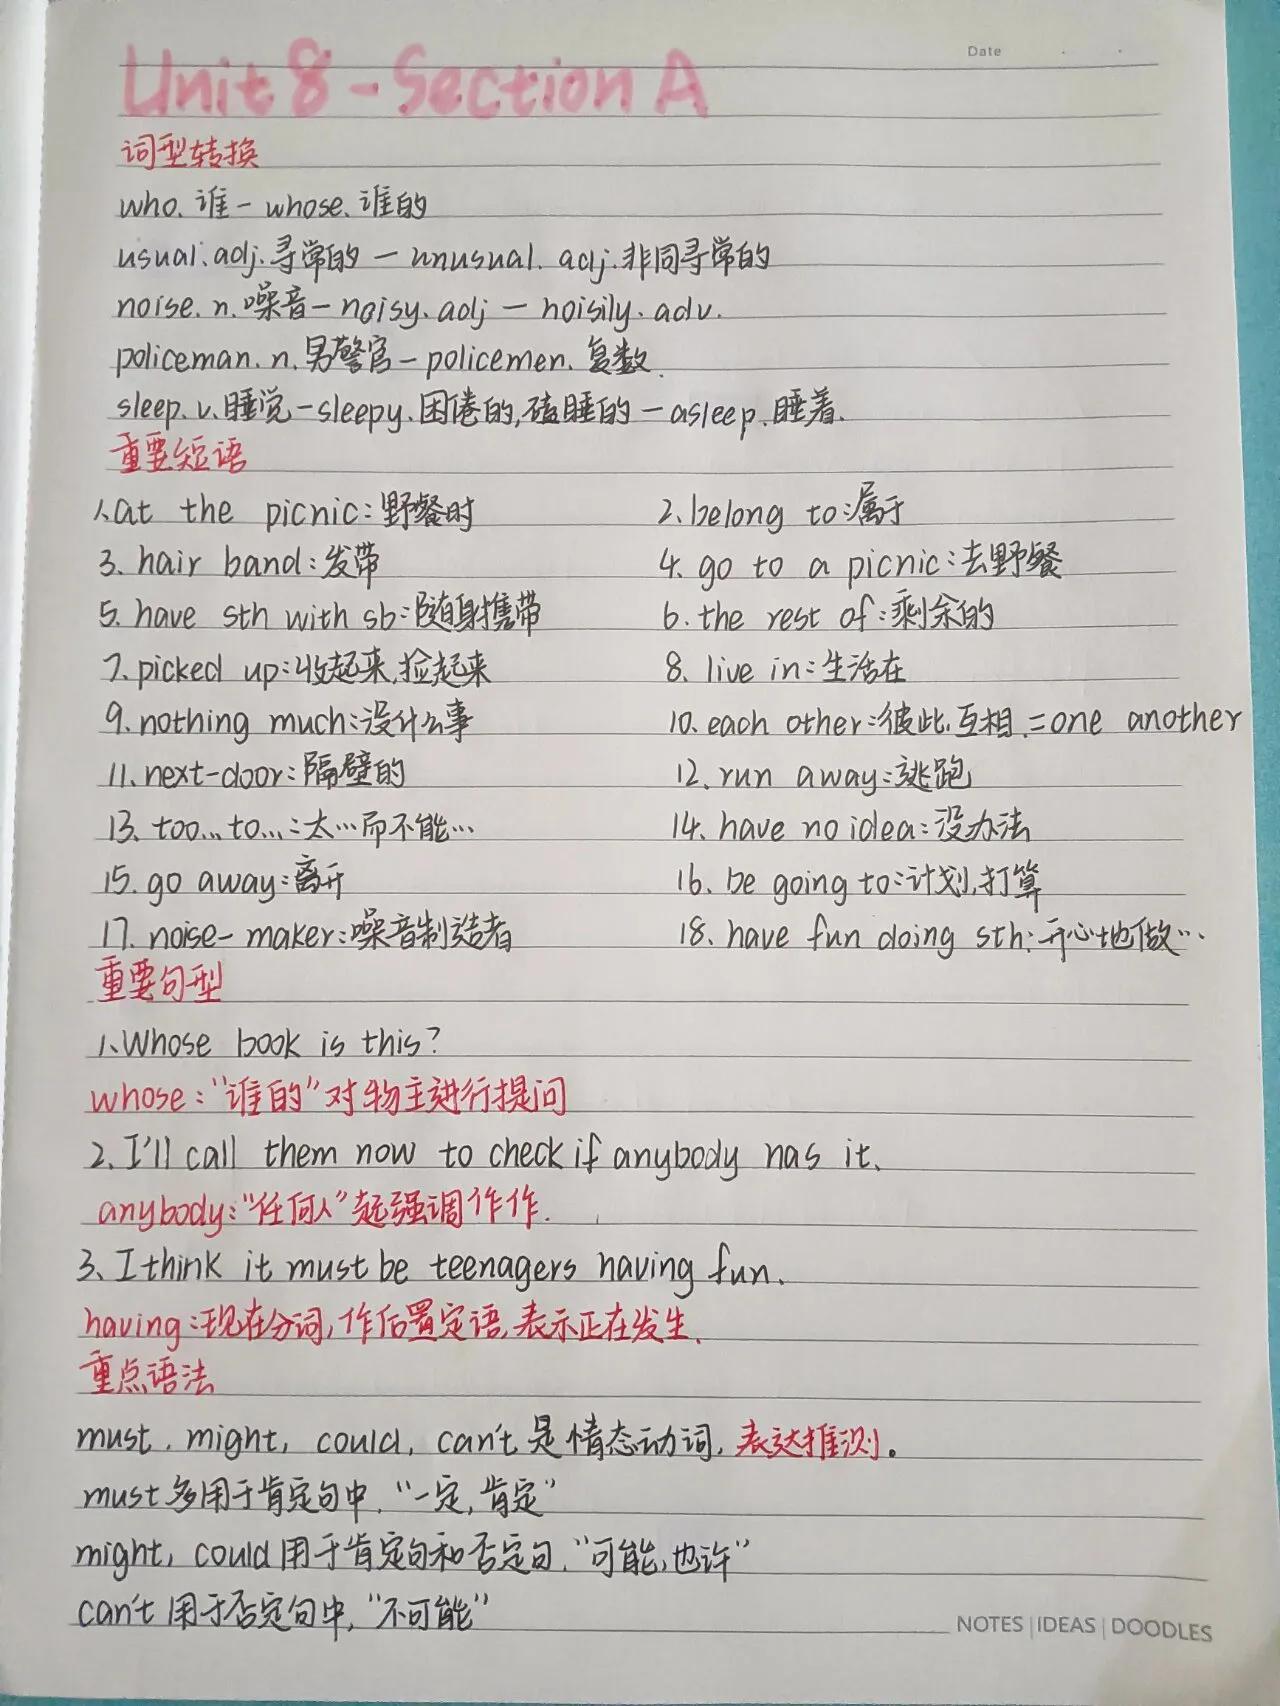 Date
Unit 8 - Section A
词型转换
who. 谁 - whose. 谁的
usual. adj. 寻常的 - unusual. adj. 非同寻常的
noise. n. 噪音 - noisy. adj - noisily. adv.
policeman. n. 男警官 - policemen. 复数.
sleep. v. 睡觉 - sleepy. 困倦的, 瞌睡的 - asleep. 睡着.
重要短语
1. at the picnic: 野餐时 2. belong to: 属于
3. hair band: 发带 4. go to a picnic: 去野餐
5. have sth with sb: 随身携带 6. the rest of: 剩余的
7. picked up: 收起来, 捡起来 8. live in: 生活在
9. nothing much: 没什么事 10. each other: 彼此, 互相. = one another
11. next-door: 隔壁的 12. run away: 逃跑
13. too... to...: 太…而不能… 14. have no idea: 没办法
15. go away: 离开 16. be going to: 计划, 打算
17. noise-maker: 噪音制造者 18. have fun doing sth: 开心地做…
重要句型
1. Whose book is this?
whose: "谁的" 对物主进行提问
2. I'll call them now to check if anybody has it.
anybody: "任何人" 起强调作作.
3. I think it must be teenagers having fun.
having: 现在分词, 作后置定语, 表示正在发生.
重点语法
must, might, could, can't 是情态动词, 表达推测。
must 多用于肯定句中, "一定, 肯定"
might, could 用于肯定句和否定句, "可能, 也许"
can't 用于否定句中, "不可能"
NOTES | IDEAS | DOODLES